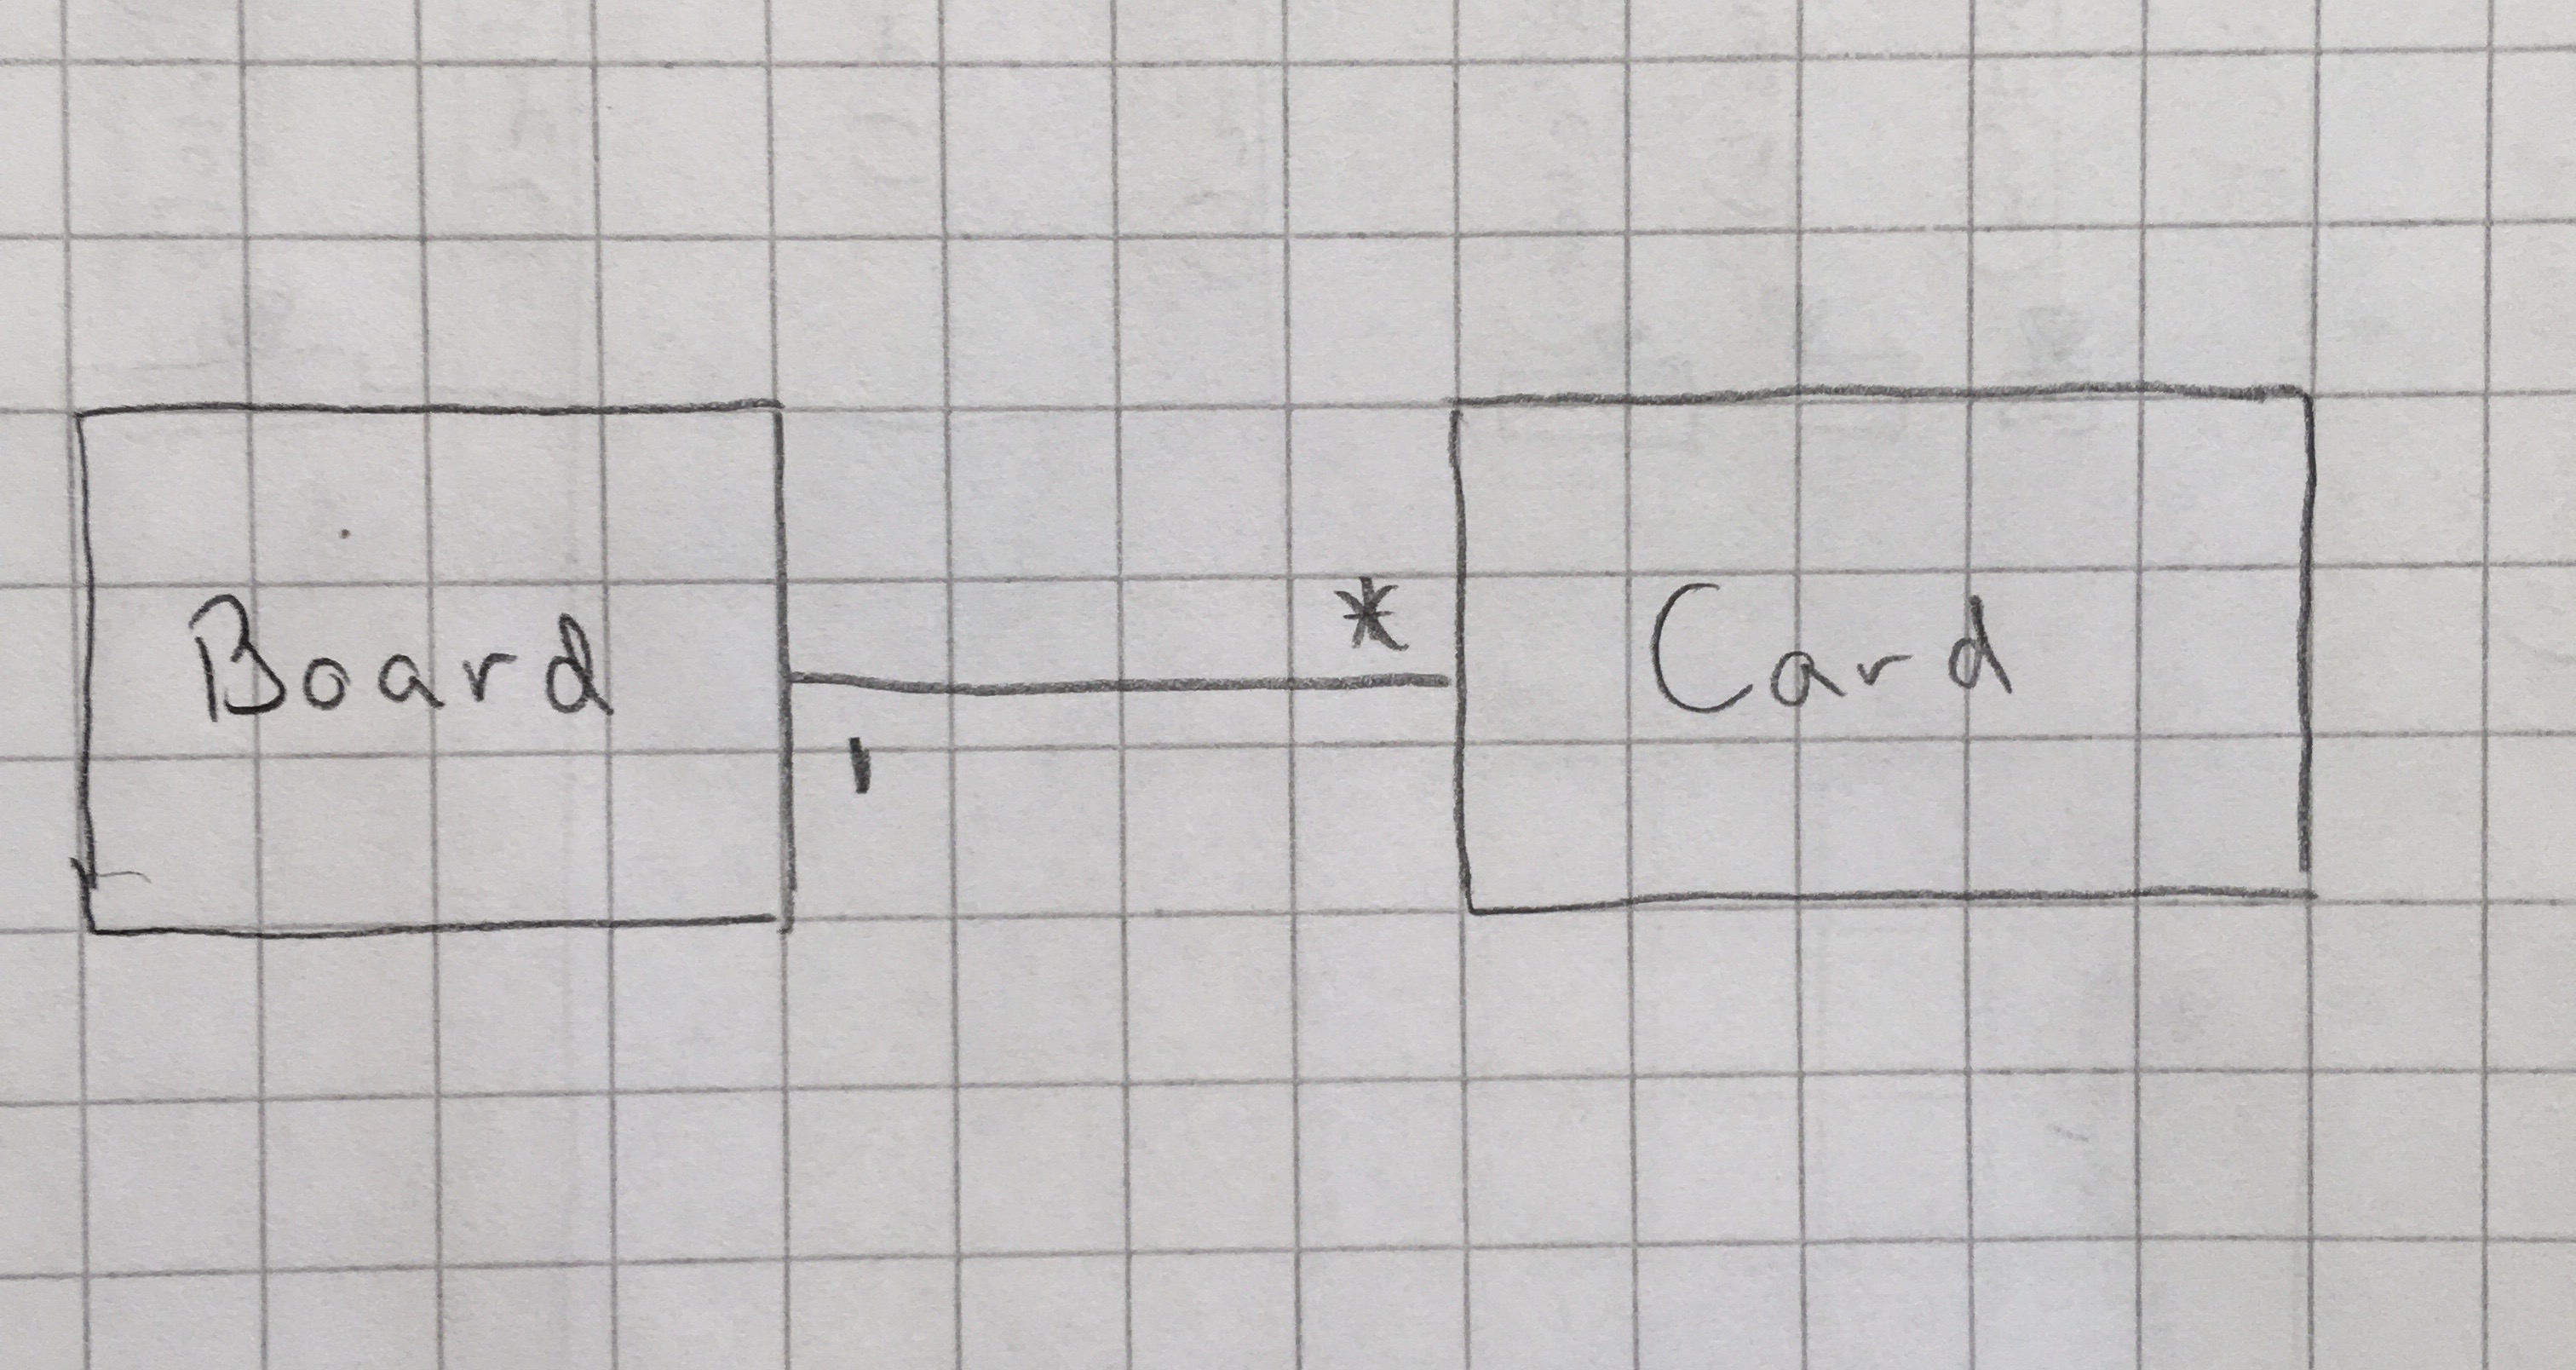 *
Board Card
1